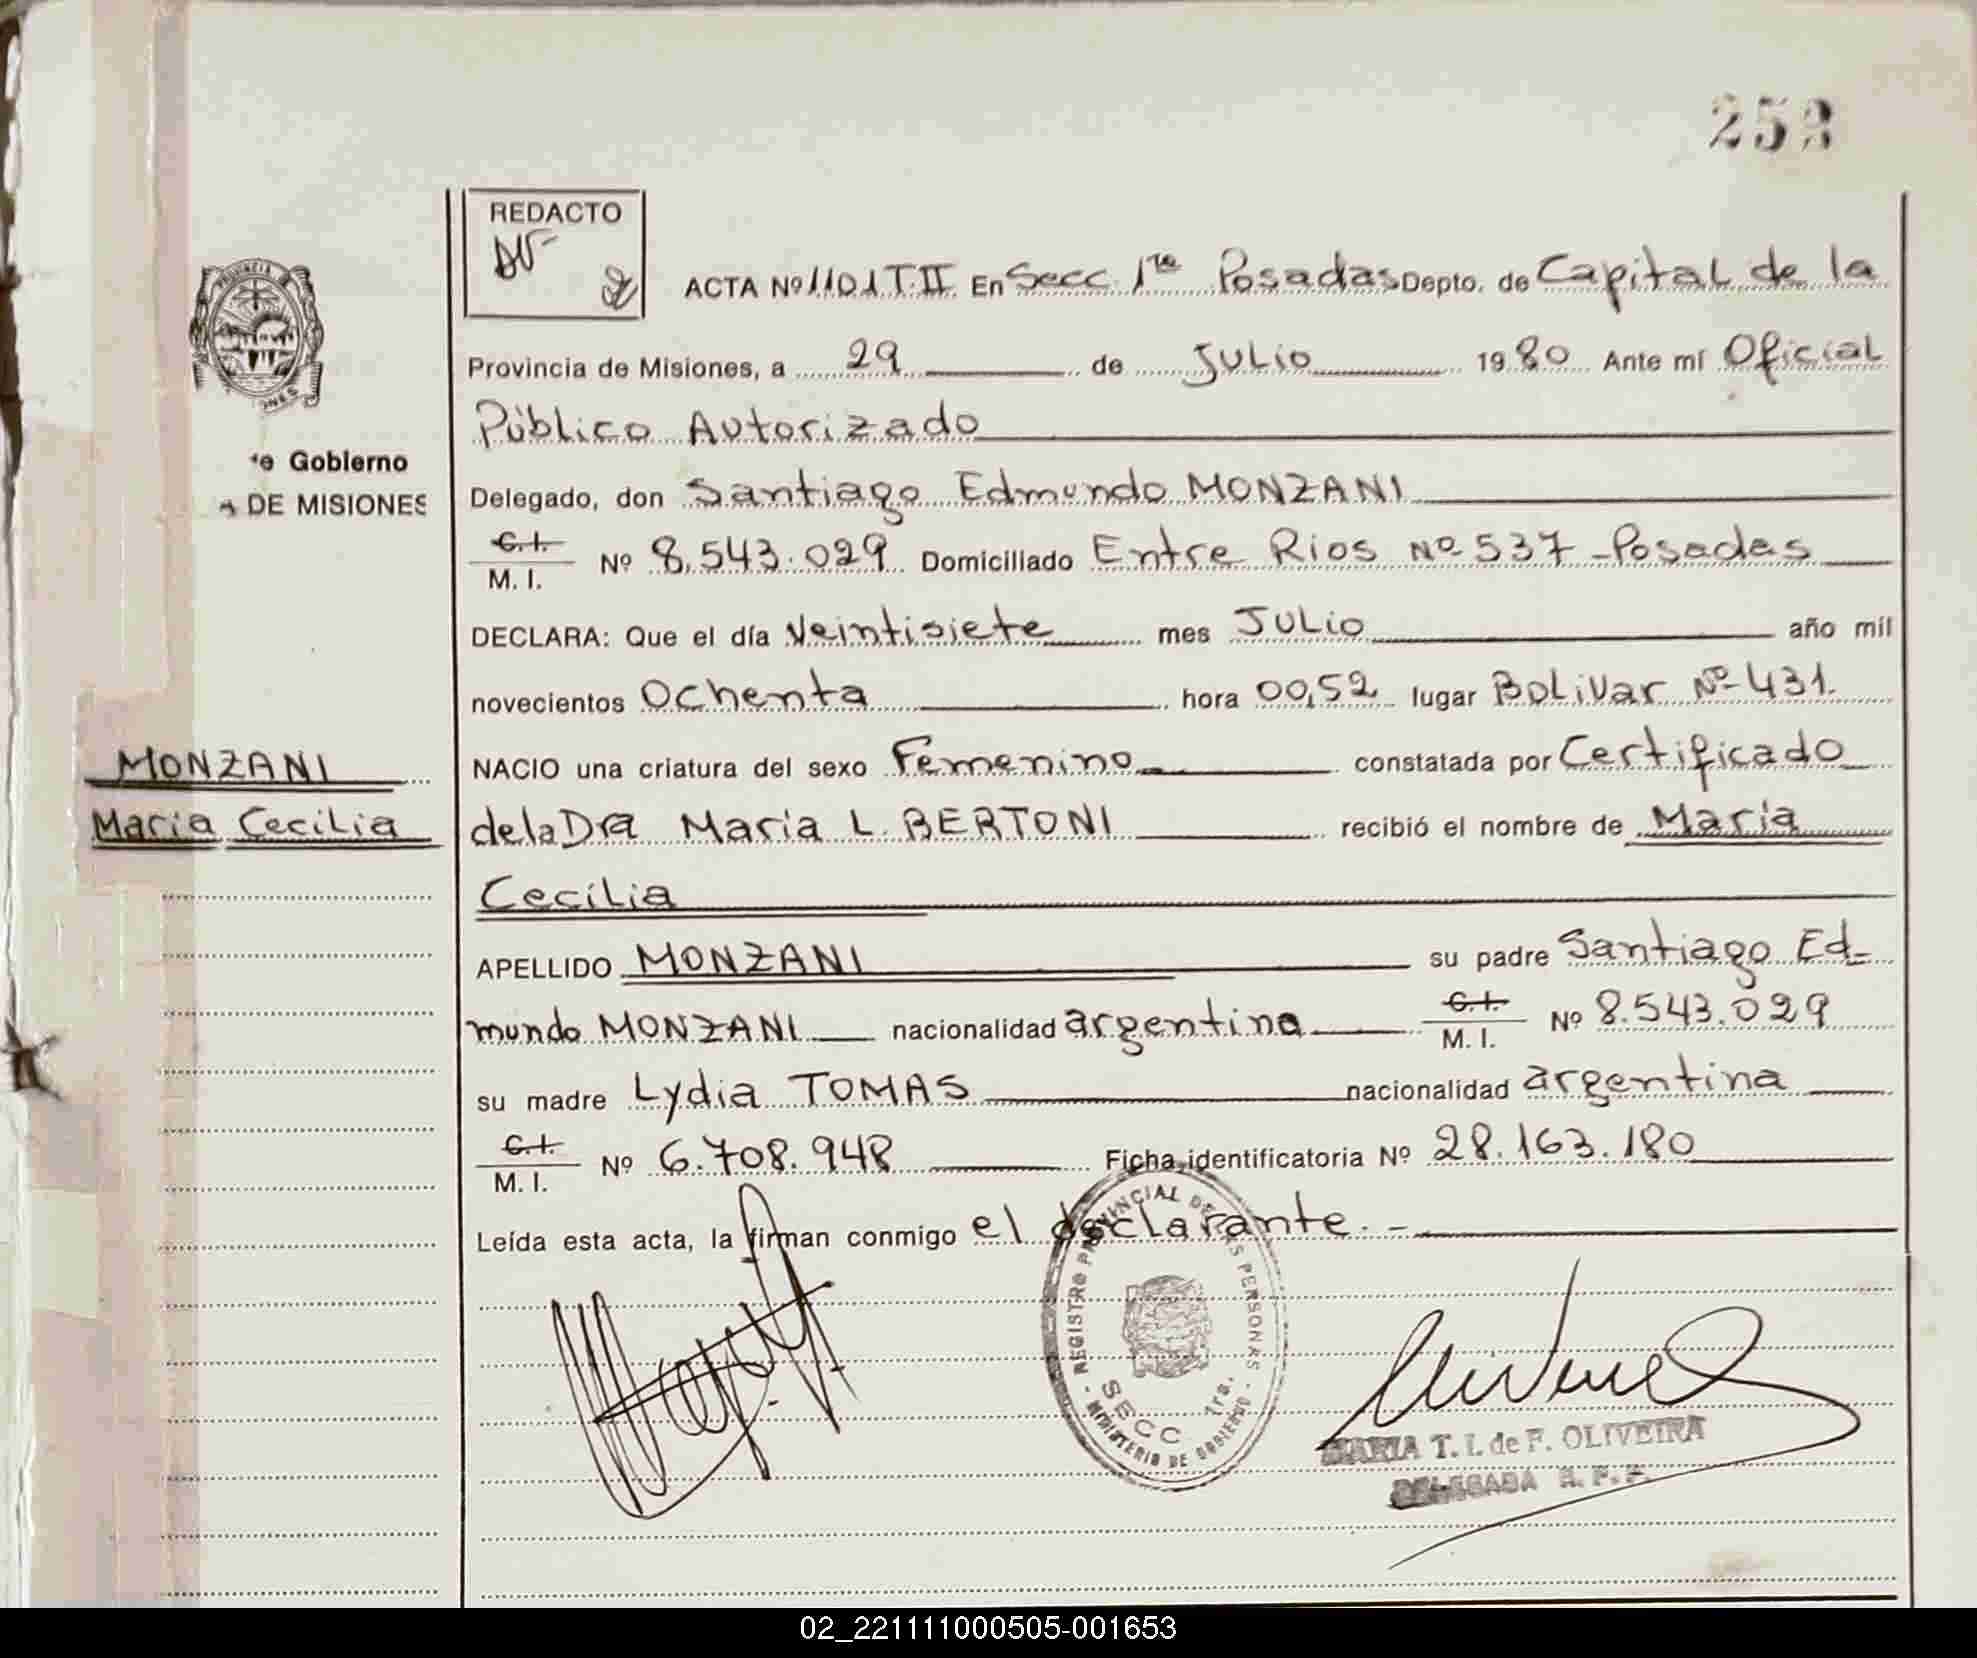 252
REDACTO
ACTA Nº 1101 T.II En Secc 1ra Posadas Depto. de Capital de la
Provincia de Misiones, a 29 de JULio 1980 Ante mí Oficial
Público Autorizado
Delegado, don Santiago Edmundo MONZANI
C.I. / M. I. Nº 8.543.029 Domiciliado Entre Rios Nº 537 - Posadas
DECLARA: Que el día Veintisiete mes JULio año mil
novecientos Ochenta hora 00,52 lugar BoLiVar Nº 431.
NACIO una criatura del sexo Femenino constatada por Certificado
de la Dra Maria L. BERTONI recibió el nombre de María
Cecilia
APELLIDO MONZANI su padre Santiago Ed-
mundo MONZANI nacionalidad argentina C.I. / M. I. Nº 8.543.029
su madre Lydia TOMAS nacionalidad argentina
C.I. / M. I. Nº 6.708.948 Ficha identificatoria Nº 28.163.180
Leída esta acta, la firman conmigo el declarante. -
PROVINCIA
e Gobierno
DE MISIONES
MONZANI
Maria Cecilia
REGISTRO PROVINCIAL DE LAS PERSONAS
SECC 1ra.
MINISTERIO DE GOBIERNO
MARIA T. I. de F. OLIVEIRA
DELEGADA
02_221111000505-001653